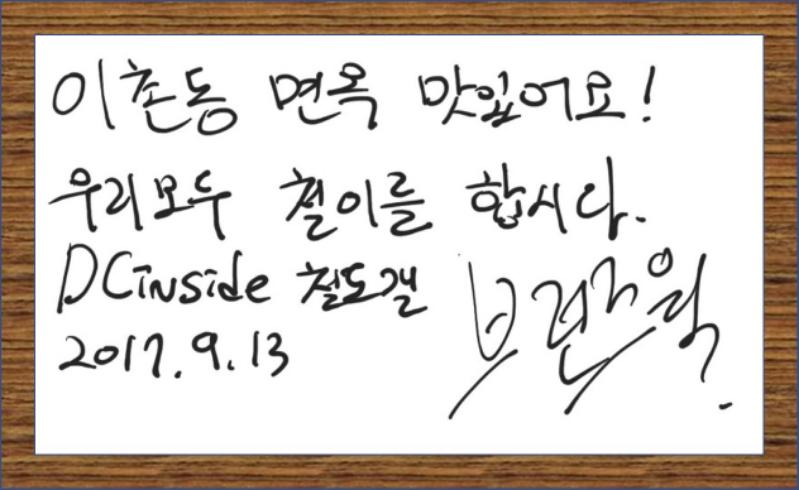 이촌동 면옥 맛있어요!
우리모두 철이를 합시다.
DCinside 철도갤
2017.9.13